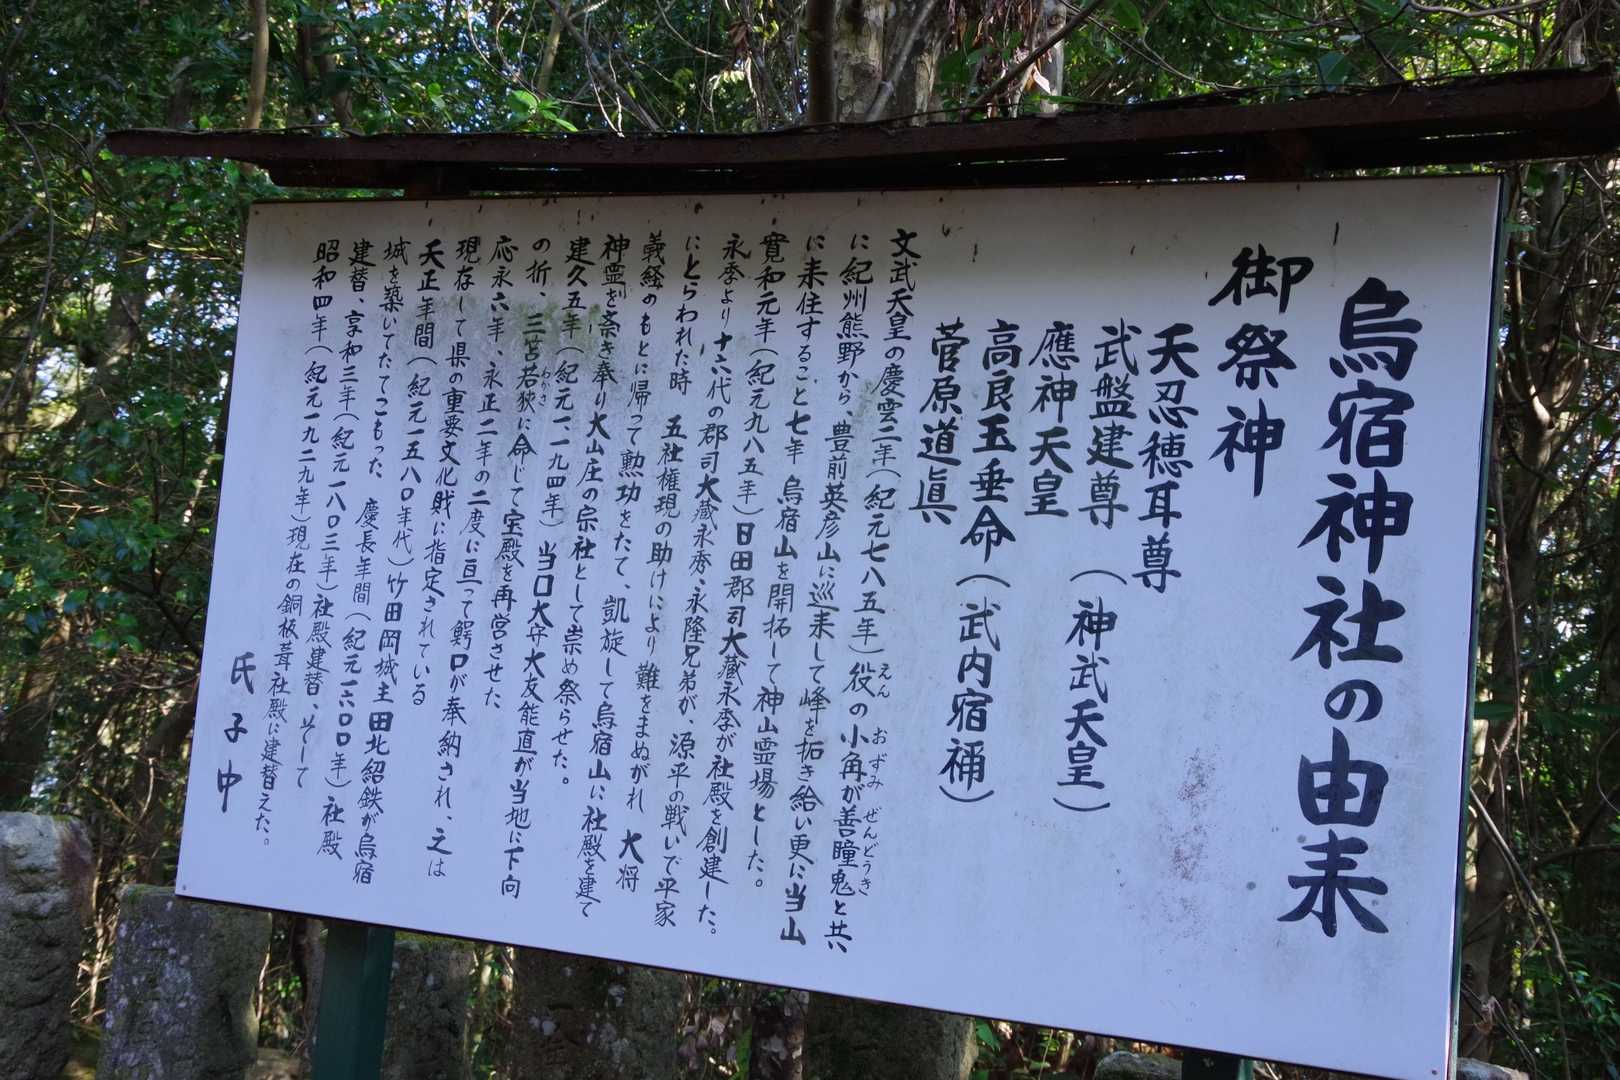 烏宿神社の由来
御祭神
天忍穂耳尊
武盤建尊（神武天皇）
應神天皇
高良玉垂命（武内宿禰）
菅原道眞
文武天皇の慶雲二年（紀元七八五年）役の小角が善瞳鬼と共
えん おずみ ぜんどうき
に紀州熊野から、豊前英彦山に巡来して峰を拓き給い更に当山
に来住すること七年 烏宿山を開拓して神山霊場とした。
寛和元年（紀元九八五年）日田郡司大蔵永季が社殿を創建した。
永季より十六代の郡司大蔵永秀、永隆兄弟が、源平の戦いで平家
にとらわれた時 五社権現の助けにより難をまぬがれ 大将
義経のもとに帰って勲功をたて、凱旋して烏宿山に社殿を建て
神霊を斎き奉り大山庄の宗社として崇め祭らせた。
建久五年（紀元一、一九四年）当口大守大友能直が当地に下向
の折、三苫若狭に命じて宝殿を再営させた
わかさ
応永六年、永正二年の二度に亘って鰐口が奉納され、之は
現存して県の重要文化財に指定されている
天正年間（紀元一五八〇年代）竹田岡城主田北紹鉄が烏宿
城を築いてたてこもった 慶長年間（紀元一六〇〇年）社殿
建替、享和三年（紀元一八〇三年）社殿建替、そして
昭和四年（紀元一九二九年）現在の銅板葺社殿に建替えた。
氏子中